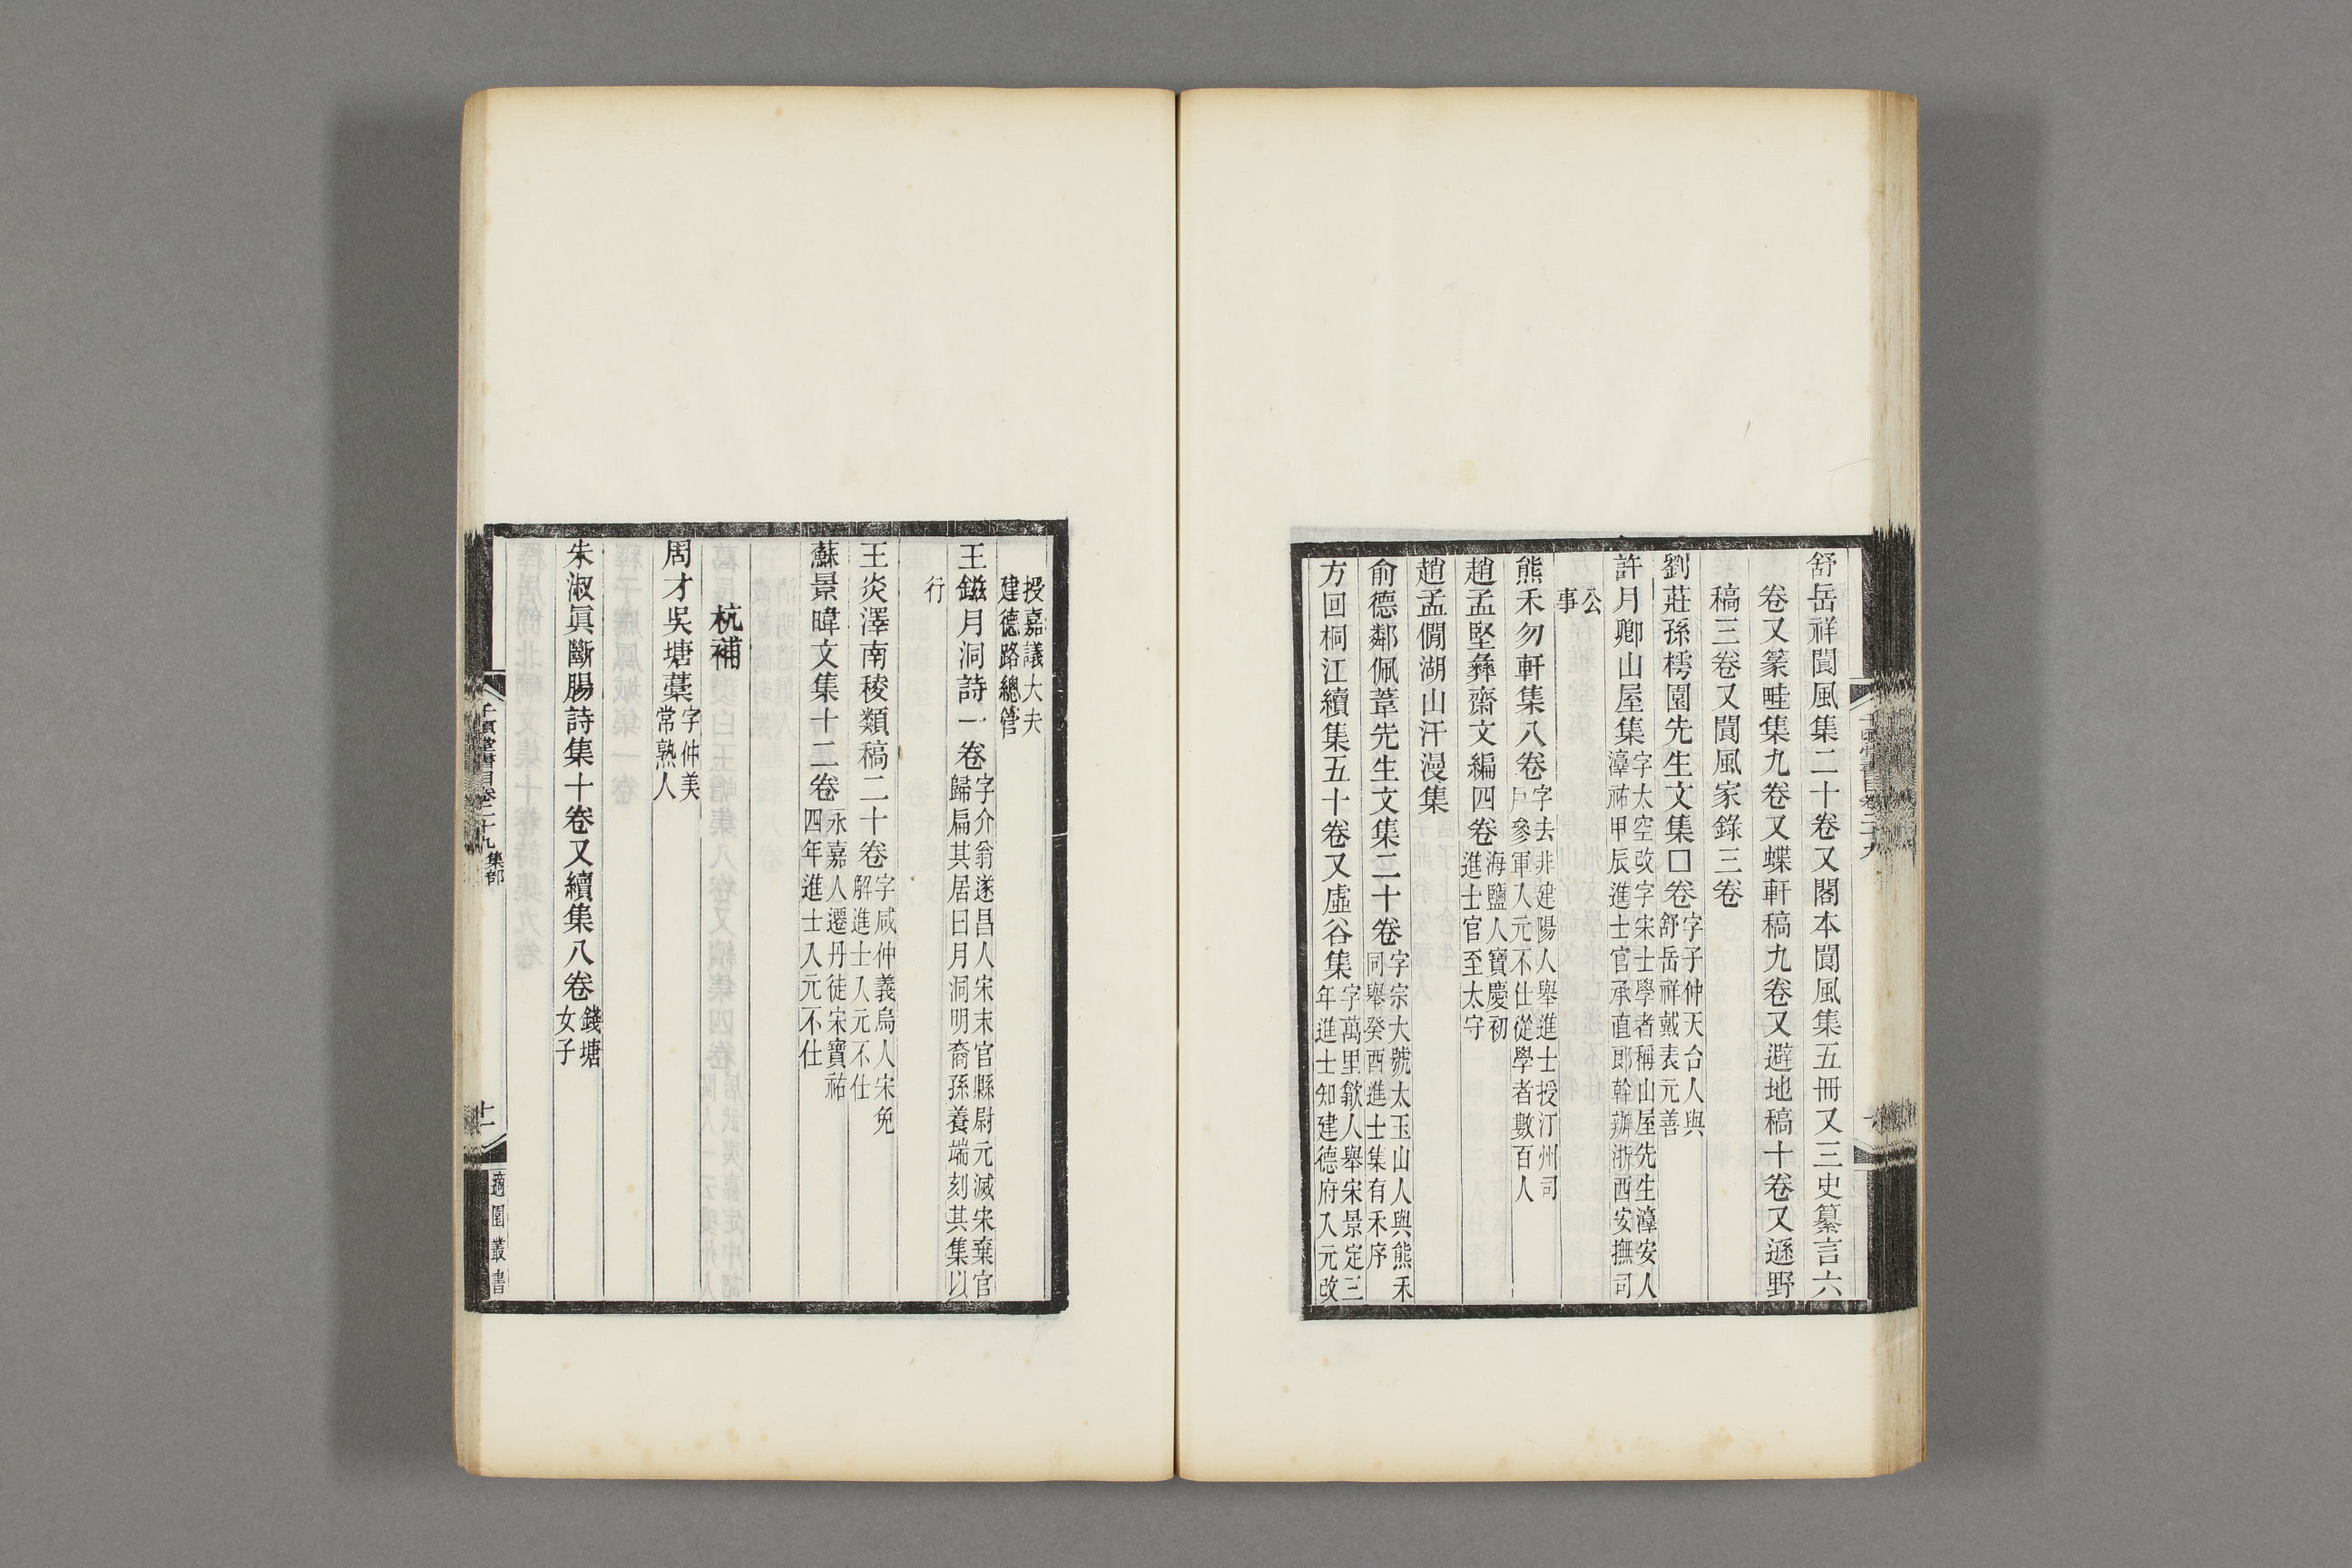 舒岳祥閬風集二十卷又閣本閬風集五冊又三史纂言六
卷又篆畦集九卷又蝶軒稿九卷又避地稿十卷又遜野
稿三卷又閬風家錄三卷
劉莊孫樗園先生文集□卷字子仲天台人與
舒岳祥戴表元善
許月卿山屋集字太空改字宋士學者稱山屋先生㵯安人
㵯祐甲辰進士官承直郎幹辦浙西安撫司
公
事
熊禾勿軒集八卷字去非建陽人舉進士授汀州司
戶參軍入元不仕從學者數百人
趙孟堅彝齋文編四卷海鹽人寶慶初
進士官至太守
趙孟僩湖山汗漫集
俞德鄰佩葦先生文集二十卷字宗大號太玉山人與熊禾
同舉癸酉進士集有禾序
方回桐江續集五十卷又虛谷集字萬里歙人舉宋景定三
年進士知建德府入元改
授嘉議大夫
建德路總管
王鎡月洞詩一卷字介翁遂昌人宋末官縣尉元滅宋棄官
歸扁其居曰月洞明裔孫養端刻其集以
行
王炎澤南稜類稿二十卷字咸仲義烏人宋免
解進士入元不仕
蘇景暐文集十二卷永嘉人遷丹徒宋寶祐
四年進士入元不仕
杭補
周才吳塘藁字仲美
常熟人
朱淑眞斷腸詩集十卷又續集八卷錢塘
女子
千頃堂書目卷二十九 集部
十一
適園叢書